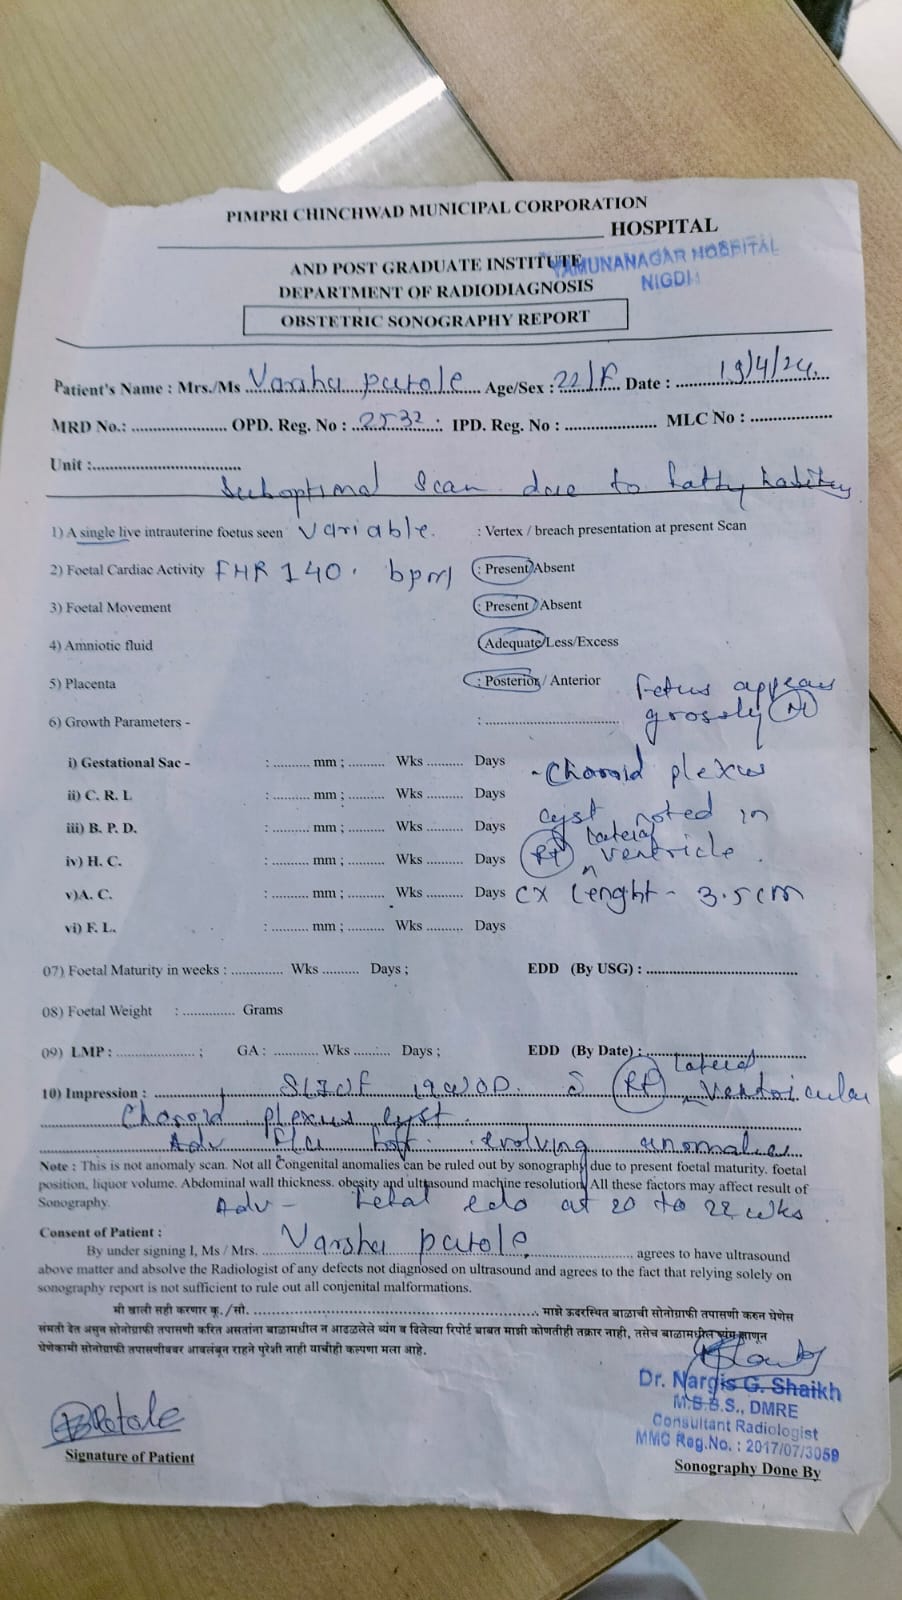 PIMPRI CHINCHWAD MUNICIPAL CORPORATION
HOSPITAL
YAMUNANAGAR HOSPITAL
NIGDI
AND POST GRADUATE INSTITUTE
DEPARTMENT OF RADIODIAGNOSIS
OBSTETRIC SONOGRAPHY REPORT
Patient's Name : Mrs./Ms Varsha patole Age/Sex : 22/F Date : 19/4/24
MRD No.: OPD. Reg. No : 2532 IPD. Reg. No : MLC No :
Unit :
Suboptimal scan due to fatty habitus
1) A single live intrauterine foetus seen variable. : Vertex / breach presentation at present Scan
2) Foetal Cardiac Activity FHR 140 bpm : Present/Absent
3) Foetal Movement : Present/Absent
4) Amniotic fluid Adequate/Less/Excess
5) Placenta : Posterior / Anterior
Fetus appears
grossly (N)
6) Growth Parameters - :
i) Gestational Sac - : mm ; Wks Days
- Choroid plexus
ii) C. R. L : mm ; Wks Days
cyst noted in
iii) B. P. D. : mm ; Wks Days
(Rt) lateral ventricle.
iv) H. C. : mm ; Wks Days
v)A. C. : mm ; Wks Days
cx lenght - 3.5cm
vi) F. L. : mm ; Wks Days
07) Foetal Maturity in weeks : Wks Days ; EDD (By USG) :
08) Foetal Weight : Grams
09) LMP : ; GA : Wks Days ; EDD (By Date) :
10) Impression : SLIUF 19W0D (Rt) lateral ventricular
Choroid plexus cyst.
Adv F/u evolving anomalies
Note : This is not anomaly scan. Not all Congenital anomalies can be ruled out by sonography due to present foetal maturity. foetal
position, liquor volume. Abdominal wall thickness. obesity and ultrasound machine resolution All these factors may affect result of
Sonography.
Adv - Fetal echo at 20 to 22 wks.
Consent of Patient :
By under signing I, Ms / Mrs. Varsha patole agrees to have ultrasound
above matter and absolve the Radiologist of any defects not diagnosed on ultrasound and agrees to the fact that relying solely on
sonography report is not sufficient to rule out all conjenital malformations.
मी खाली सही करणार कु./सौ. माझे ऊदरस्थित बाळाची सोनोग्राफी तपासणी करुन घेणेस
संमती देत असुन सोनोग्राफी तपासणी करित असतांना बाळामधील न आढळलेले व्यंग व दिलेल्या रिपोर्ट बाबत माझी कोणतीही तक्रार नाही, तसेच बाळामधील व्यंग जाणून
घेणेकामी सोनोग्राफी तपासणीवर आवलंबून राहने पुरेशी नाही याचीही कल्पणा मला आहे.
Dr. Nargis G. Shaikh
M.B.B.S., DMRE
Consultant Radiologist
MMC Reg.No. : 2017/07/3059
Patole
Signature of Patient
Sonography Done By